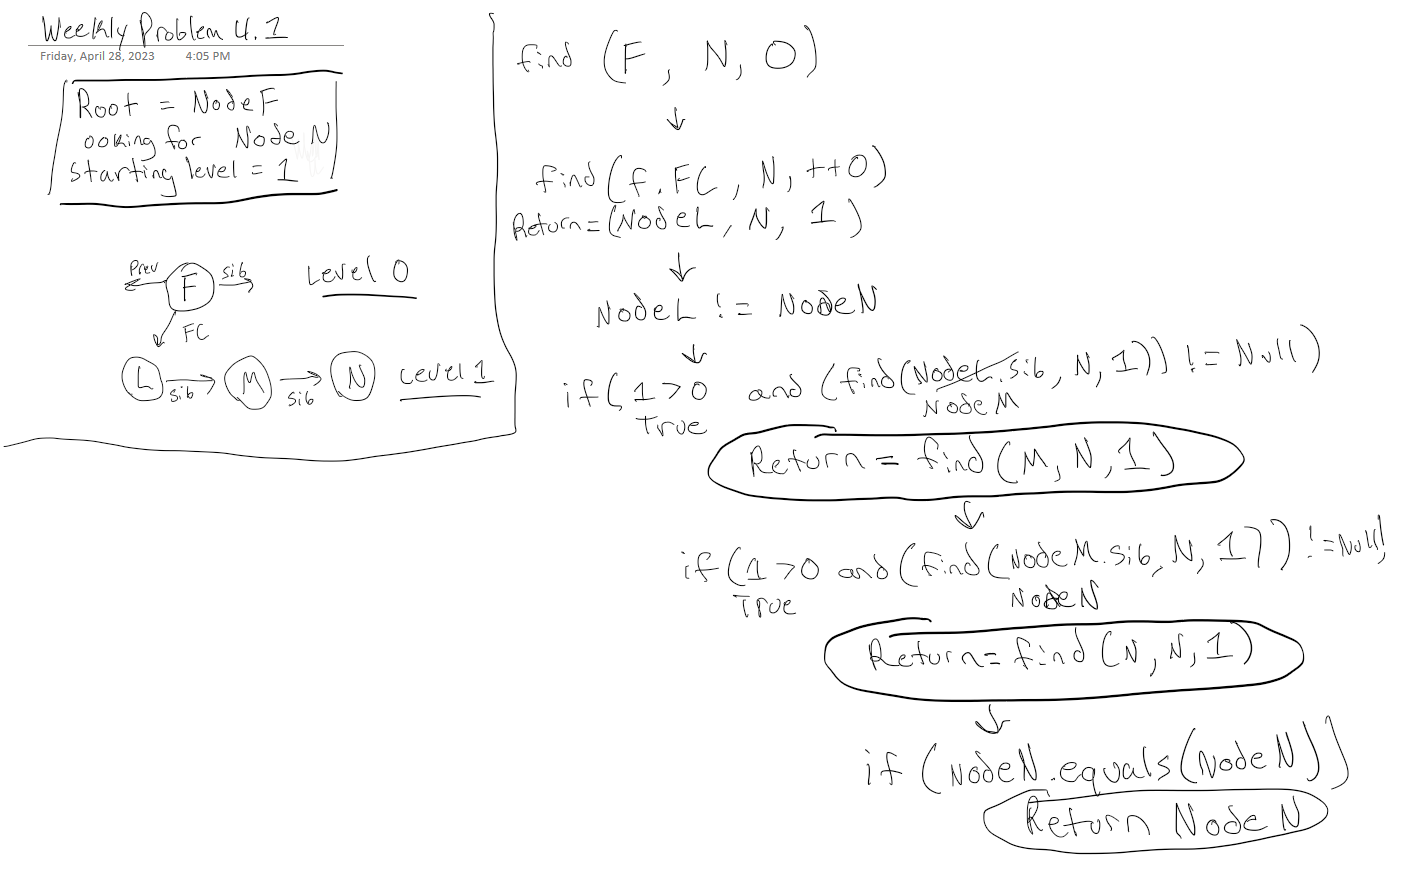 Weekly Problem 4.1
Friday, April 28, 2023 4:05 PM
Root = Node F
ooking for Node N
starting level = 1
Prev F sib Level 0
FC
L sib M sib N Level 1
find (F, N, 0)
find (f.FC, N, ++0)
Return = (NodeL, N, 1)
NodeL != NodeN
if (1>0 and (find(NodeL.sib, N, 1)) != Null)
True NodeM
Return = find (M, N, 1)
if (1>0 and (find (NodeM.sib, N, 1)) != Null)
True NodeN
Return = find (N, N, 1)
if (NodeN.equals(NodeN))
Return Node N